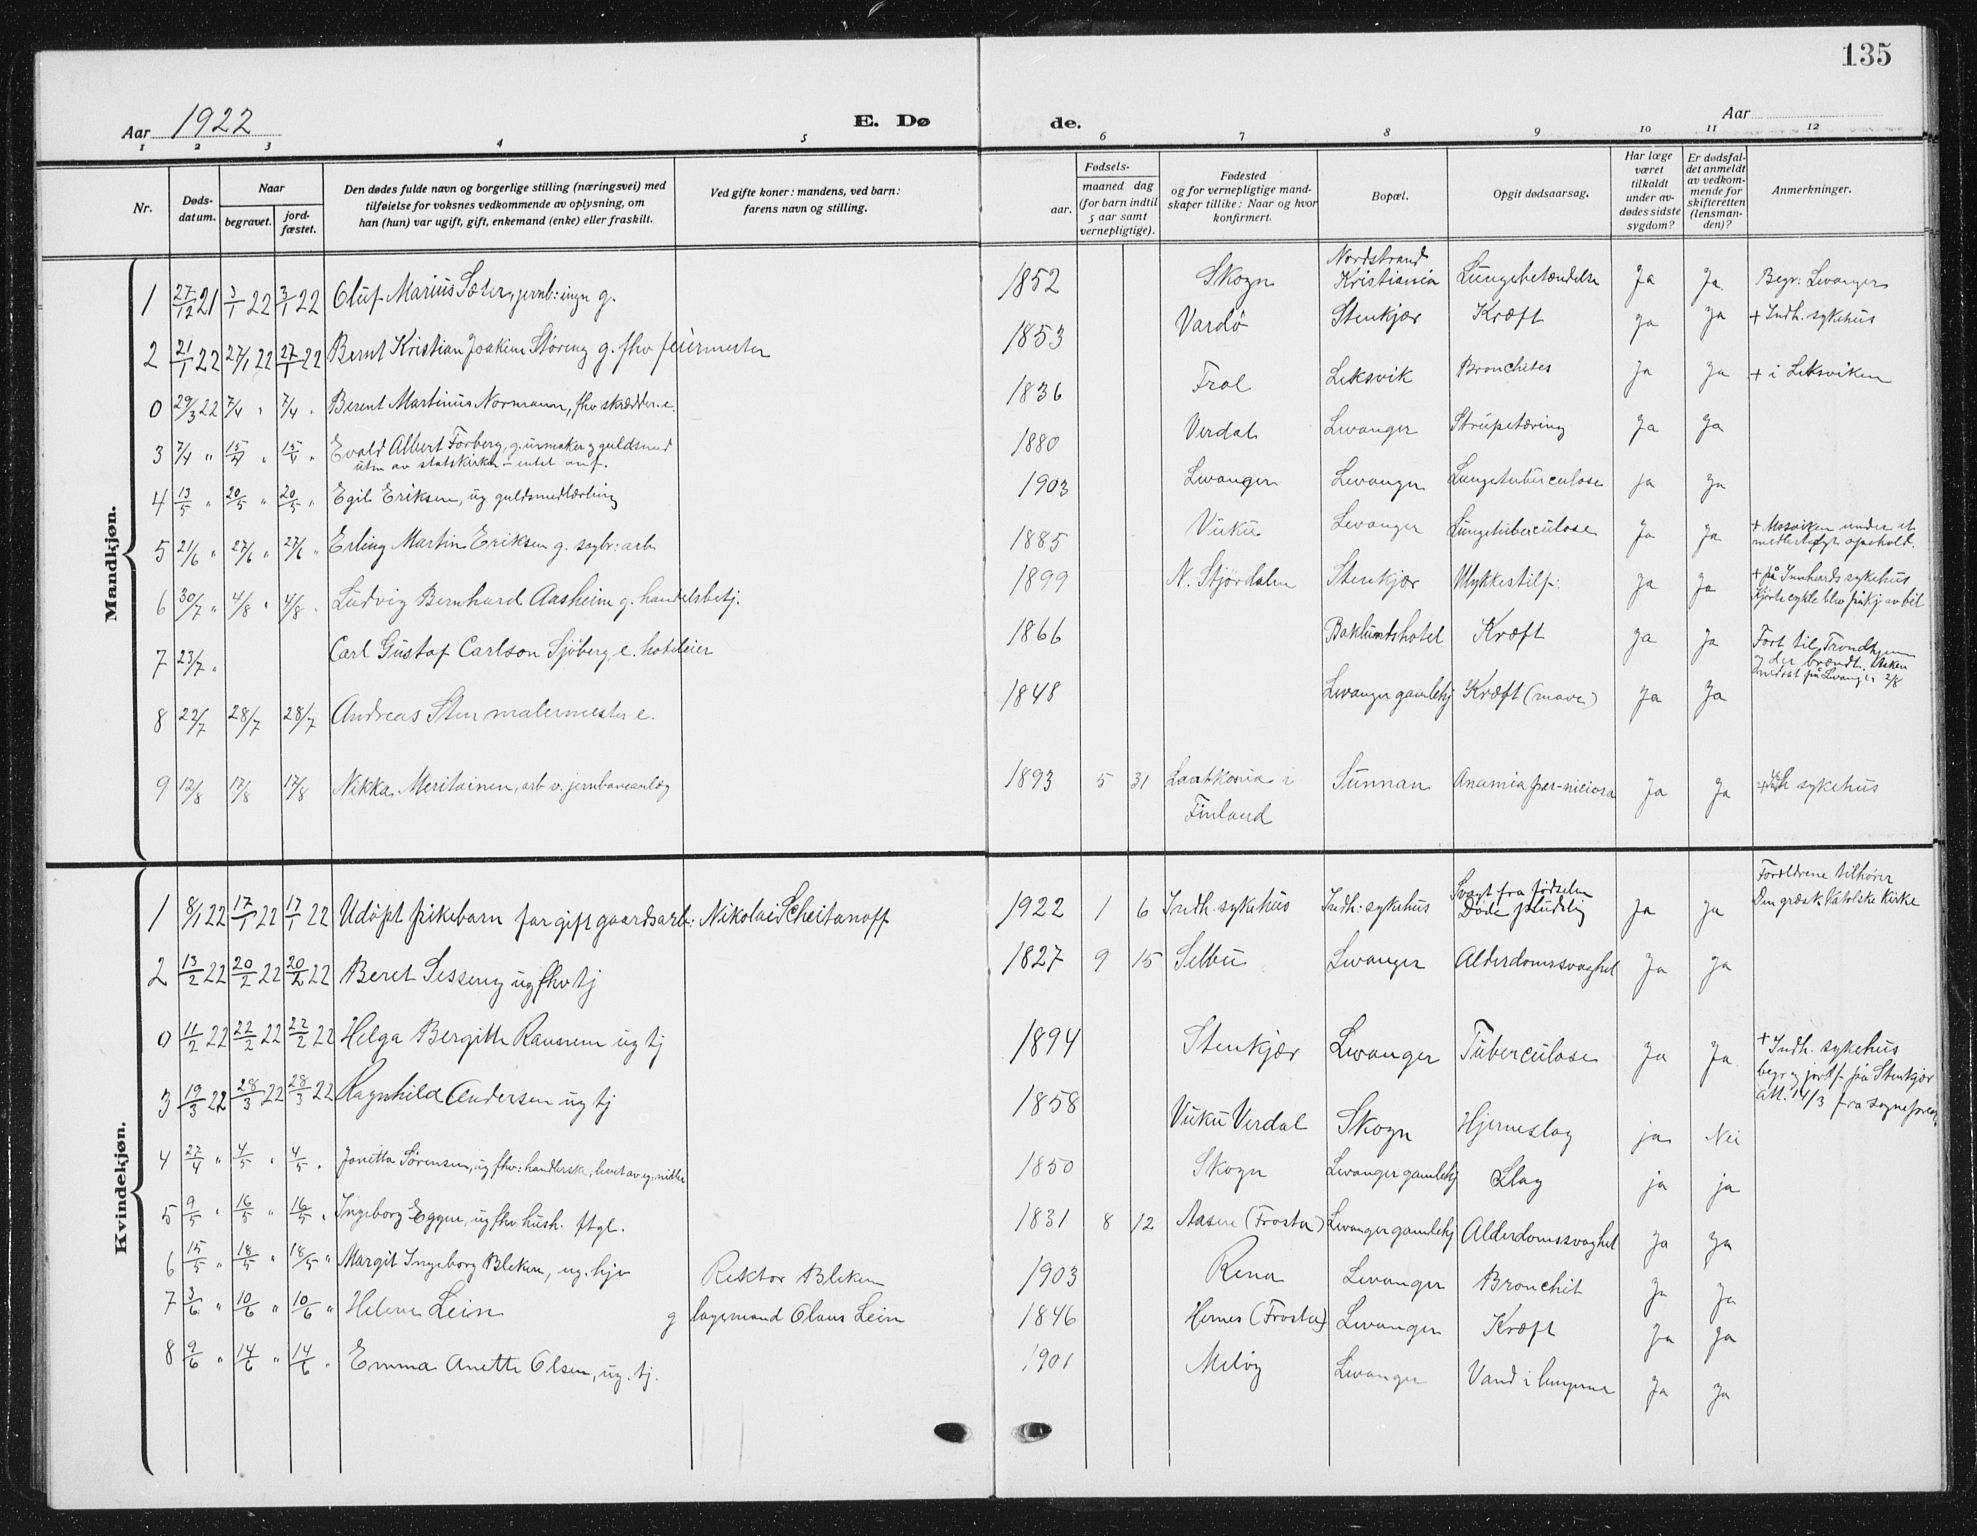 135
Aar 1922
E. Dø
de.
Aar
1 2 3 4 5 6 7 8 9 10 11 12
Nr.
Døds-
datum.
Naar
begravet.
jord-
fæstet.
Den dødes fulde navn og borgerlige stilling (næringsvei) med
tilføielse for voksnes vedkommende av oplysning, om
han (hun) var ugift, gift, enkemand (enke) eller fraskilt.
Ved gifte koner: mandens, ved barn:
farens navn og stilling.
Fødsels-
aar.
maaned dag
(for barn indtil
5 aar samt
vernepligtige).
Fødested
og for vernepligtige mand-
skaper tillike: Naar og hvor
konfirmert.
Bopæl.
Opgit dødsaarsag.
Har læge
været
tilkaldt
under av-
dødes sidste
sygdom?
Er dødsfal-
det anmeldt
av vedkom-
mende for
skifteretten
(lensman-
den)?
Anmerkninger.
Mandkjøn.
1 27/12 21 3/1 22 3/1 22 Oluf Marius Sæter, jernb: ingn g. 1852 Skogn Nordstrand
Kristiania Lungebetændelse Ja Ja Begr: Levanger
2 21/1 22 27/1 22 27/1 22 Bernt Kristian Joakim Störing g. fhv feiermester 1853 Vardö Stenkjær Kræft Ja Ja + Indh. sykehus
0 29/3 22 7/4 " 7/4 " Berent Martinus Normann, fhv skrædder. e. 1836 Frol Leksvik Bronchites Ja Ja + i Leksviken
3 7/4 " 15/4 " 15/4 " Evald Albert Forberg, g. urmaker og guldsmed
utm av statskirken - intet anf. 1880 Verdal Levanger Strupetæring Ja Ja
4 13/5 " 20/5 " 20/5 " Egil Eriksen, ug guldsmedlærling 1903 Levanger Levanger Lungetuberculose Ja Ja
5 21/6 " 27/6 " 27/6 " Erling Martin Eriksen g. sagbr: arb 1885 Vuku Levanger Lungetuberculose Ja Ja + Mosviken under et
midlertidigt ophold.
6 30/7 " 4/8 " 4/8 " Ludvig Bernhard Aasheim g. handelsbetj. 1899 N. Stjördalen Stenkjær Ulykkestilf: Ja Ja + på Innherds sykehus
Kjørte cykle blev påkj av bil
7 23/7 " Carl Gustaf Carlson Sjöberg, e. hoteleier 1866 Baklundshotel Kræft Ja Ja Fört til Trondhjem
og der brændt. Asken
nedsat på Levanger 2/8
8 22/7 28/7 28/7 Andreas Sten malermester e. 1848 Levanger gamlehj Kræft (mave) Ja Ja
9 12/8 17/8 17/8 Nikka Meritainen, arb v. jernbaneanlæg 1893 5 31 i
Finland Sunnan Anæmia per-niciosa Ja Ja + Indh sykehus
Kvindekjøn.
1 8/1 22 17/1 22 17/1 22 Udöpt pikebarn far gift gaardsarb: Nikolai Scheitanoff 1922 1 6 Indh. sykehus Indh. sykehus Svagt fra fødselen
Döde pludslig Ja Ja Foreldrene tilhører
Den græsk katolske kirke
2 13/2 22 20/2 22 20/2 22 Beret Sesseng ug fhv tj 1827 9 15 Selbu Levanger Alderdomssvaghet Ja Ja
0 11/2 22 22/2 22 22/2 22 Helga Bergitte Ramnem ug tj 1894 Stenkjær Levanger Tuberculose Ja Ja + Indh. sykehus
begr og jordf. på Stenkjær
Att. 14/3 fra sognepresten
3 19/3 22 28/3 22 28/3 22 Ragnhild Andersen ug tj 1858 Vuku Verdal Skogn Hjerneslag ja Nei
4 27/4 " 4/5 " 4/5 " Jonetta Sörensen, ug fhv: handlerske, levet av eg. midler 1850 Skogn Levanger gamlehj Slag ja ja
5 9/5 " 16/5 " 16/5 " Ingeborg Eggen, ug fhv. hush. ftgl. 1831 8 12 Aasen (Frosta) Levanger gamlehj Alderdomssvaghet Ja Ja
6 15/5 " 18/5 " 18/5 " Margit Ingeborg Bleken, ug. hjv Rektor Bleken 1903 Rena Levanger Bronchit Ja Ja
7 3/6 " 10/6 " 10/6 " Helene Lein g lagemand Olaus Lein 1846 Hernes (Frosta) Levanger Kræft Ja Ja
8 9/6 " 14/6 " 14/6 " Emma Anette Olsen, ug. tj. 1901 Melöy Levanger Vand i lungerne Ja Ja